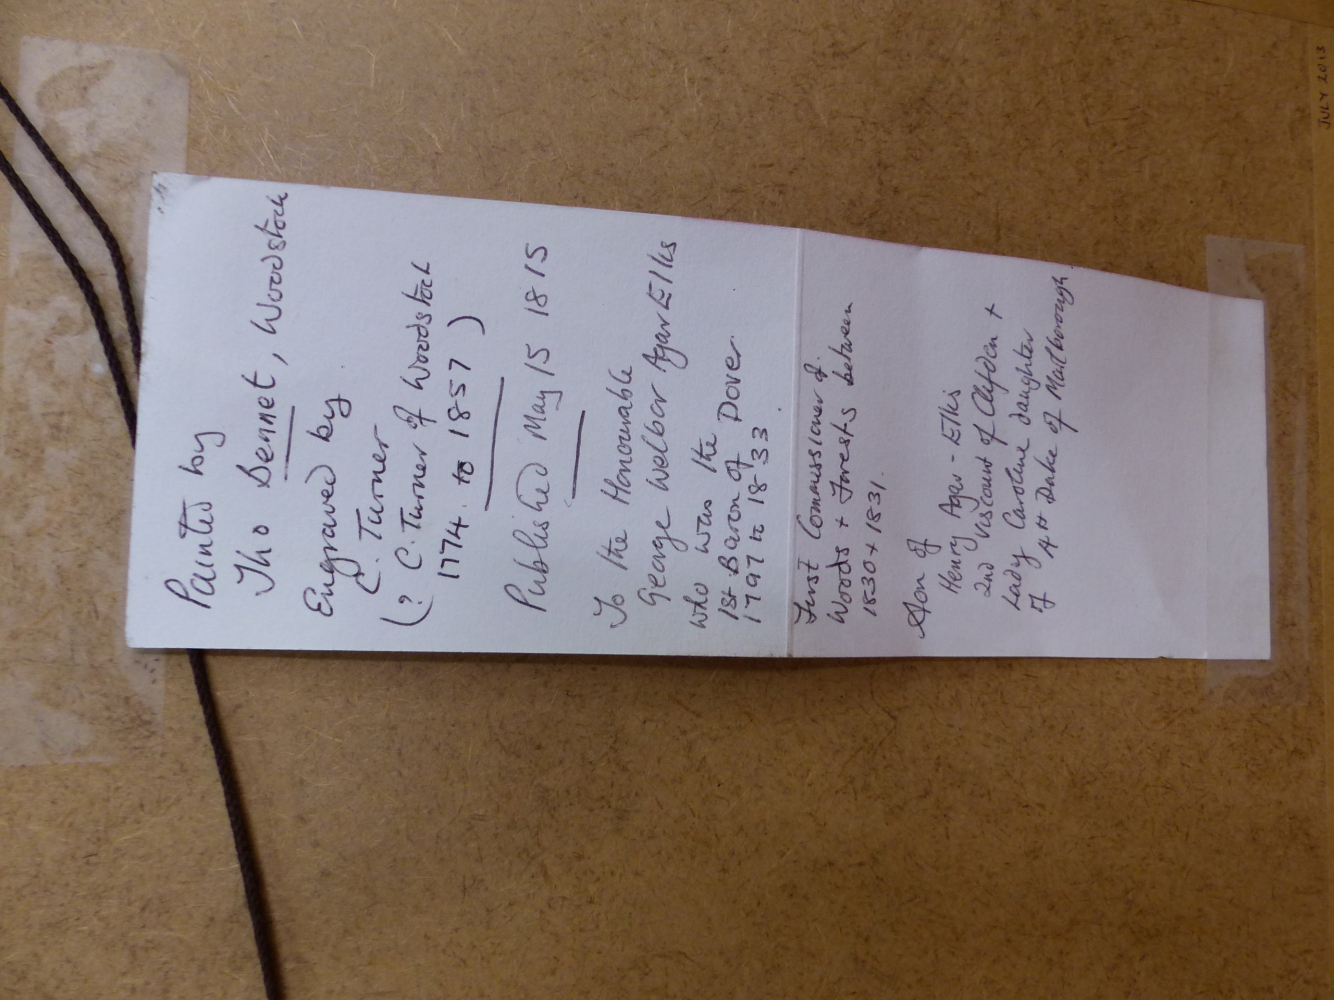 Painted by
Tho Bennet, Woodstock
Engraved by
C. Turner
(? C. Turner of Woodstock
1774. to 1857)
Published May 15 1815
To the Honourable
George Welbor Agar Ellis
who was the
1st Baron of Dover
1797 to 1833
First Commissioner of
Woods + Forests between
1830 + 1831.
Son of
Henry Agar - Ellis
2nd Viscount of Clifden +
Lady Caroline daughter
of 4th Duke of Marlborough
JULY 2013